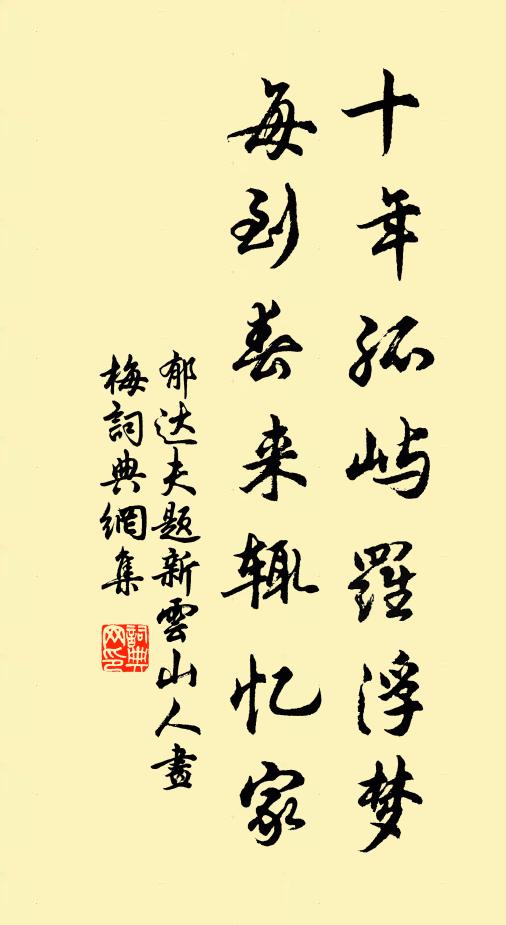 十年孤屿羅浮梦
每到春来辄忆家
郁达夫题新雲山人畫
梅詞典網集
詞典网印